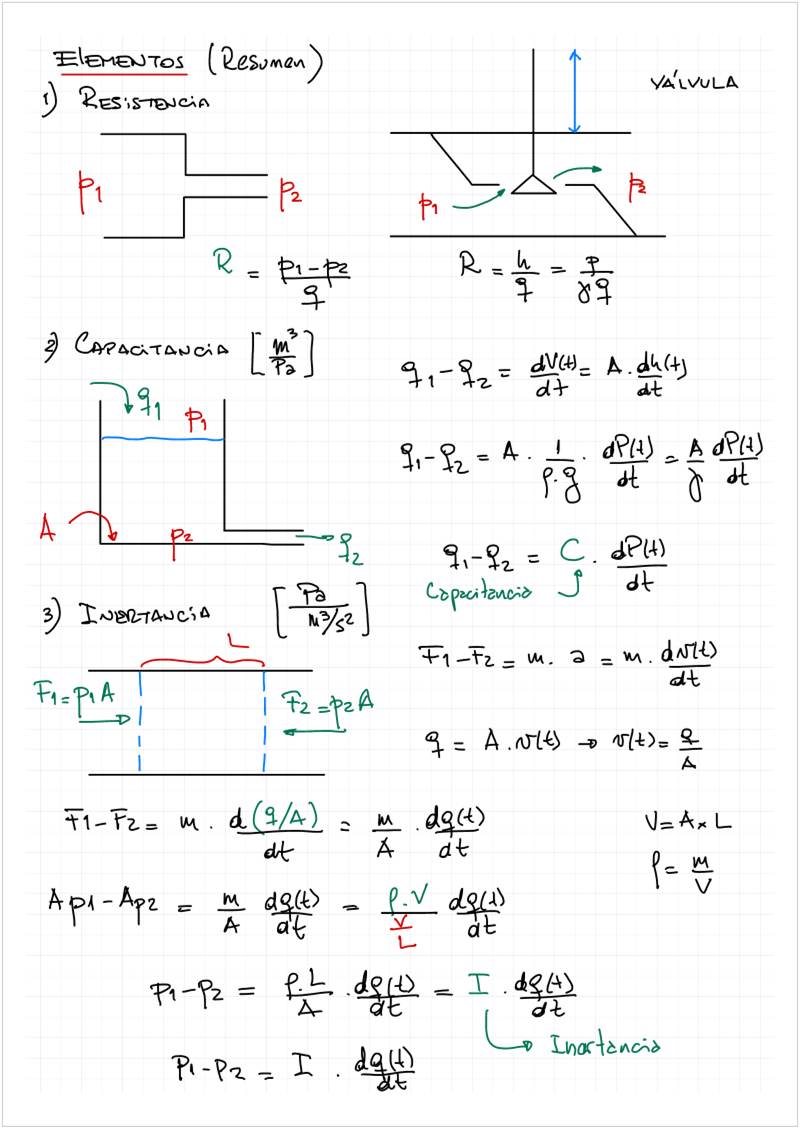 ELEMENTOS (Resumen)
1) RESISTENCIA
VÁLVULA
p1 p2
p1 p2
R = (p1-p2)/q
R = h/q = p/γq
2) CAPACITANCIA [m³/Pa]
q1-q2 = dV(t)/dt = A . dh(t)/dt
q1
p1
A
p2
q2
q1-q2 = A . 1/ρ.g . dP(t)/dt = A/γ dP(t)/dt
q1-q2 = C . dP(t)/dt
Capacitancia
3) INERTANCIA [Pa/m³/s²]
L
F1=p1A
F2=p2A
F1-F2 = m. a = m. dv(t)/dt
q = A.v(t) → v(t)=q/A
F1-F2 = m . d(q/A)/dt = m/A . dq(t)/dt
V=A×L
ρ=m/V
Ap1-Ap2 = m/A dq(t)/dt = ρ.V/(V/L) dq(t)/dt
p1-p2 = ρ.L/A . dq(t)/dt = I . dq(t)/dt
Inertancia
p1-p2 = I . dq(t)/dt